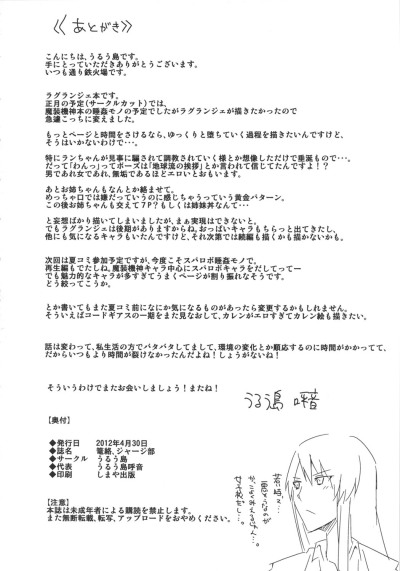 《あとがき》
こんにちは、うるう島です。
手にとっていただきありがとうございます。
いつも通り鉄火場です。
ラグランジェ本です。
正月の予定(サークルカット)では、
魔装機神本の睡姦モノの予定でしたがラグランジェが描きたかったので
急遽こっちに変えました。
もっとページと時間をさけるなら、ゆっくりと堕ちていく過程を描きたいんですけど、
そうはいかないわけで・・・。
特にランちゃんが見事に騙されて調教されていく様とか想像しただけで垂涎もので・・・。
だって「わんっ」ってポーズは「地球流の挨拶」とか言われて信じてたんですよ!?
男であれ女であれ、無垢であるほどエロいとおもいます。
あとお姉ちゃんもなんとか絡ませて。
めっちゃ口では嫌だっていうのに感じちゃうっていう黄金パターン。
この後お姉ちゃんも交えて7P?もしくは姉妹丼なんて・・・
と妄想ばかり描いてしまいましたが、まぁ実現はできないと。
でもラグランジェは後期がありますからね。おっぱいキャラもちらっと出てきたし、
他にも気になるキャラもいたんですけど、それ次第では続編も描くかも描かないかも。
次回は夏コミ参加予定ですが、今度こそスパロボ睡姦モノで。
再生編もでたしね。魔装機神キャラ中心にスパロボキャラをだしてってー
でも魅力的なキャラが多すぎてうまくページが割り振れなそうです。
どう絞ってこうか。
とか書いてもまた夏コミ前になにか気になるものがあったら変更するかもしれません。
そういえばコードギアスの一期をまた見なおして、カレンがエロすぎてカレン絵も描きたい。
話は変わって、私生活の方でバタバタしてまして、環境の変化とか順応するのに時間がかかってて、
だからいつもより時間が裂けなかったんだよね!しょうがないね!
そういうわけでまたお会いしましょう!またね!
うるう島 呼音
【奥付】
◆発行日 2012年4月30日
◆誌名 篭絡、ジャージ部
◆サークル うるう島
◆代表 うるう島呼音
◆印刷 しまや出版
【注意】
本誌は未成年者による購読を禁止します。
また無断転載、転写、アップロードをおやめください。